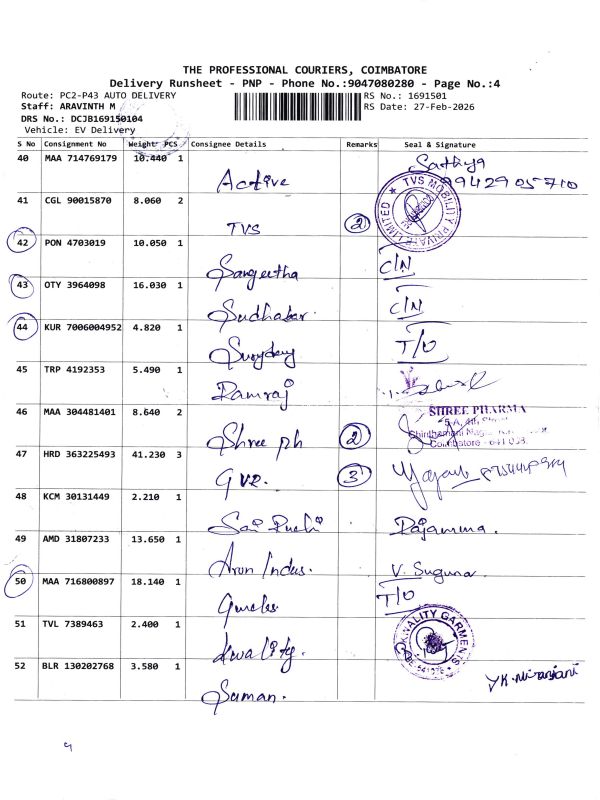 THE PROFESSIONAL COURIERS, COIMBATORE
Delivery Runsheet - PNP - Phone No.:9047080280 - Page No.:4
Route: PC2-P43 AUTO DELIVERY
RS No.: 1691501
Staff: ARAVINTH M
RS Date: 27-Feb-2026
DRS No.: DCJB169150104
Vehicle: EV Delivery
S No Consignment No Weight PCS Consignee Details Remarks Seal & Signature
40 MAA 714769179 10.440 1 Active Sathya
9942905710
41 CGL 90015870 8.060 2 TVS 2 TVS MOBILITY PRIVATE LIMITED
42 PON 4703019 10.050 1 Sangeetha C/N
43 OTY 3964098 16.030 1 Sudhakar C/N
44 KUR 7006004952 4.820 1 T/O
45 TRP 4192353 5.490 1 Ramraj
46 MAA 304481401 8.640 2 Shree ph 2 SHREE PHARMA
Coimbatore
47 HRD 363225493 41.230 3 3
48 KCM 30131449 2.210 1 Sai Ruchi Rajamma.
49 AMD 31807233 13.650 1 Arun Indus. V. Suguna.
50 MAA 716800897 18.140 1 T/O
51 TVL 7389463 2.400 1 Kwality. KWALITY GARMENTS
52 BLR 130202768 3.580 1 Suman. YK. Niranjani
4